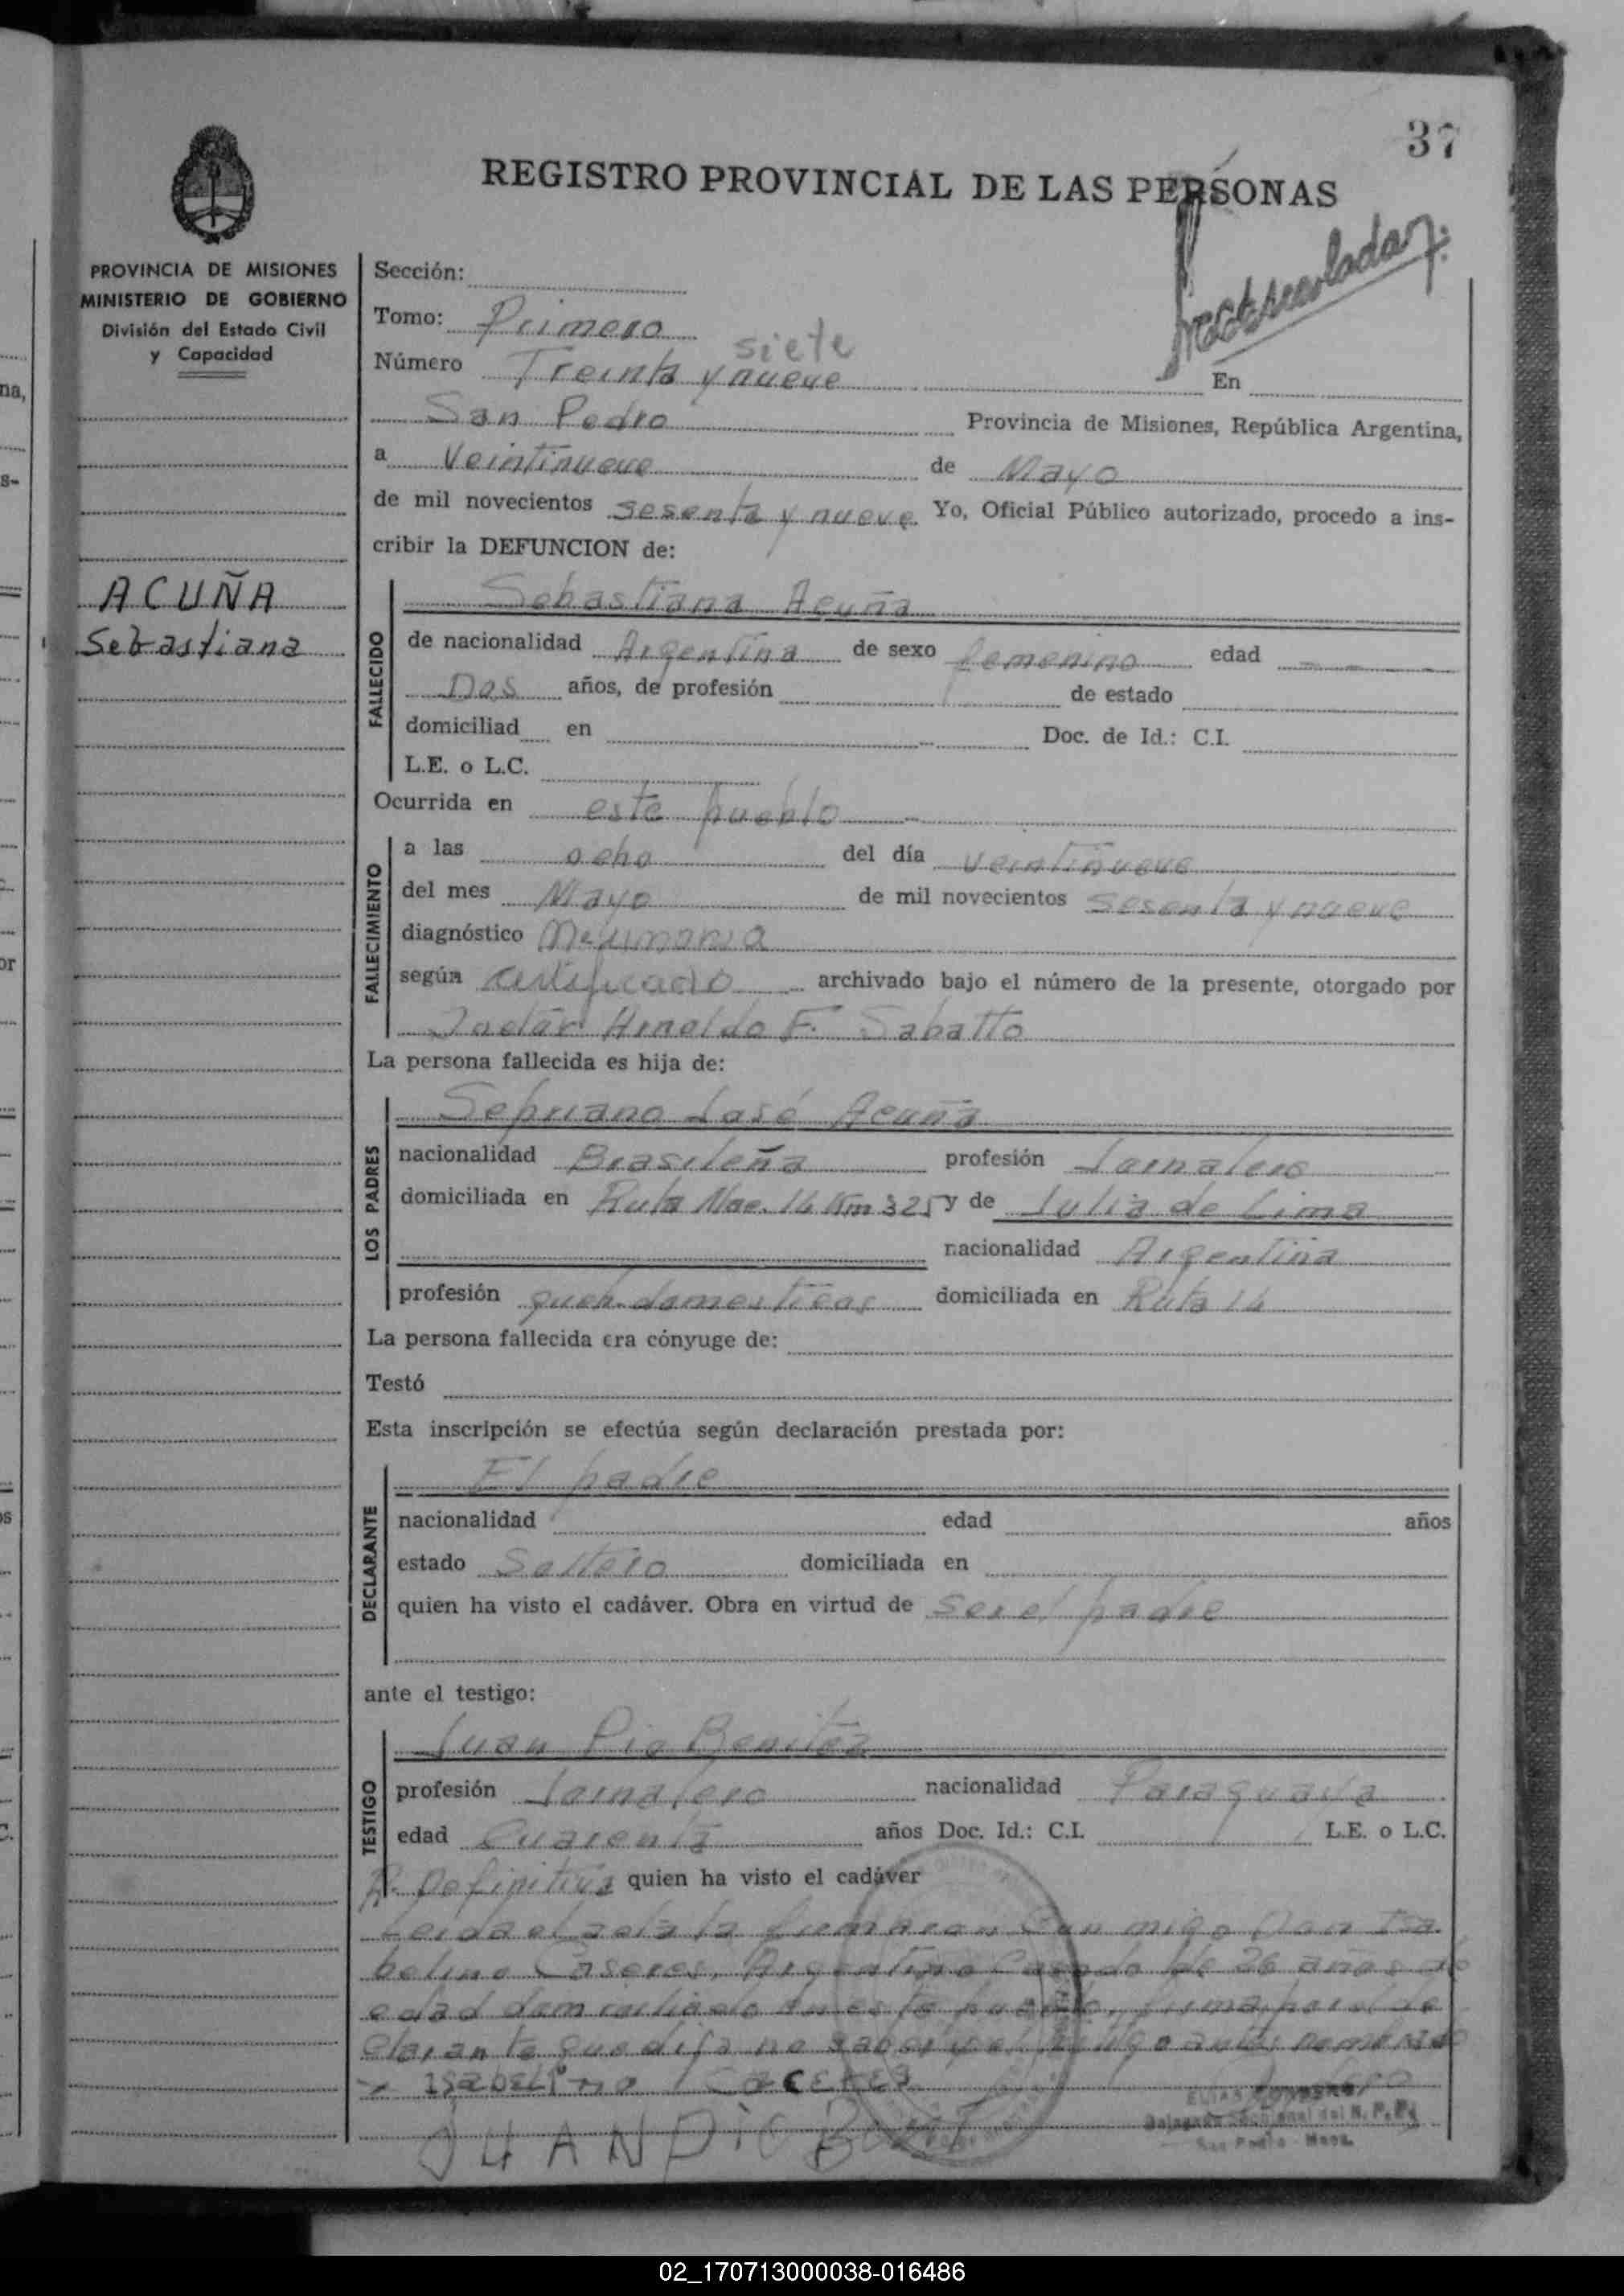 37
REGISTRO PROVINCIAL DE LAS PERSONAS
PROVINCIA DE MISIONES
MINISTERIO DE GOBIERNO
División del Estado Civil
y Capacidad
ACUÑA
Sebastiana
Sección:
Tomo: Primero
siete
Número Treinta y nueve En
San Pedro Provincia de Misiones, República Argentina,
a Veintinueve de Mayo
de mil novecientos sesenta y nueve Yo, Oficial Público autorizado, procedo a ins-
cribir la DEFUNCION de:
FALLECIDO
Sebastiana Acuña
de nacionalidad Argentina de sexo femenino edad - - -
Dos años, de profesión de estado
domiciliad en Doc. de Id.: C.I.
L.E. o L.C.
Ocurrida en este pueblo
FALLECIMIENTO
a las ocho del día veintinueve
del mes Mayo de mil novecientos sesenta y nueve
diagnóstico Neumonia
según certificado archivado bajo el número de la presente, otorgado por
Doctor Arnoldo F. Sabatto
La persona fallecida es hija de:
LOS PADRES
Sepriano José Acuña
nacionalidad Brasileña profesión Jornalero
domiciliada en Ruta Nac. 14 Km 325 y de Julia de Lima
nacionalidad Argentina
profesión queh. domesticos domiciliada en Ruta 14
La persona fallecida era cónyuge de:
Testó
Esta inscripción se efectúa según declaración prestada por:
DECLARANTE
El padre
nacionalidad edad años
estado Soltero domiciliada en
quien ha visto el cadáver. Obra en virtud de ser el padre
ante el testigo:
TESTIGO
Juan Pio Benitez
profesión Jornalero nacionalidad Paraguaya
edad Cuarenta años Doc. Id.: C.I. L.E. o L.C.
R. Definitiva quien ha visto el cadáver
Leida el acta la firmaron con migo Don Isa
belino Caseres, Argentino Casado de 26 años de
edad domiciliado en este pueblo, firma por el de
clarante que dijo no saber y el testigo antes nombrado
ISABELINO CACERES
JUAN PIO
San Pedro - Mnes.
02_170713000038-016486